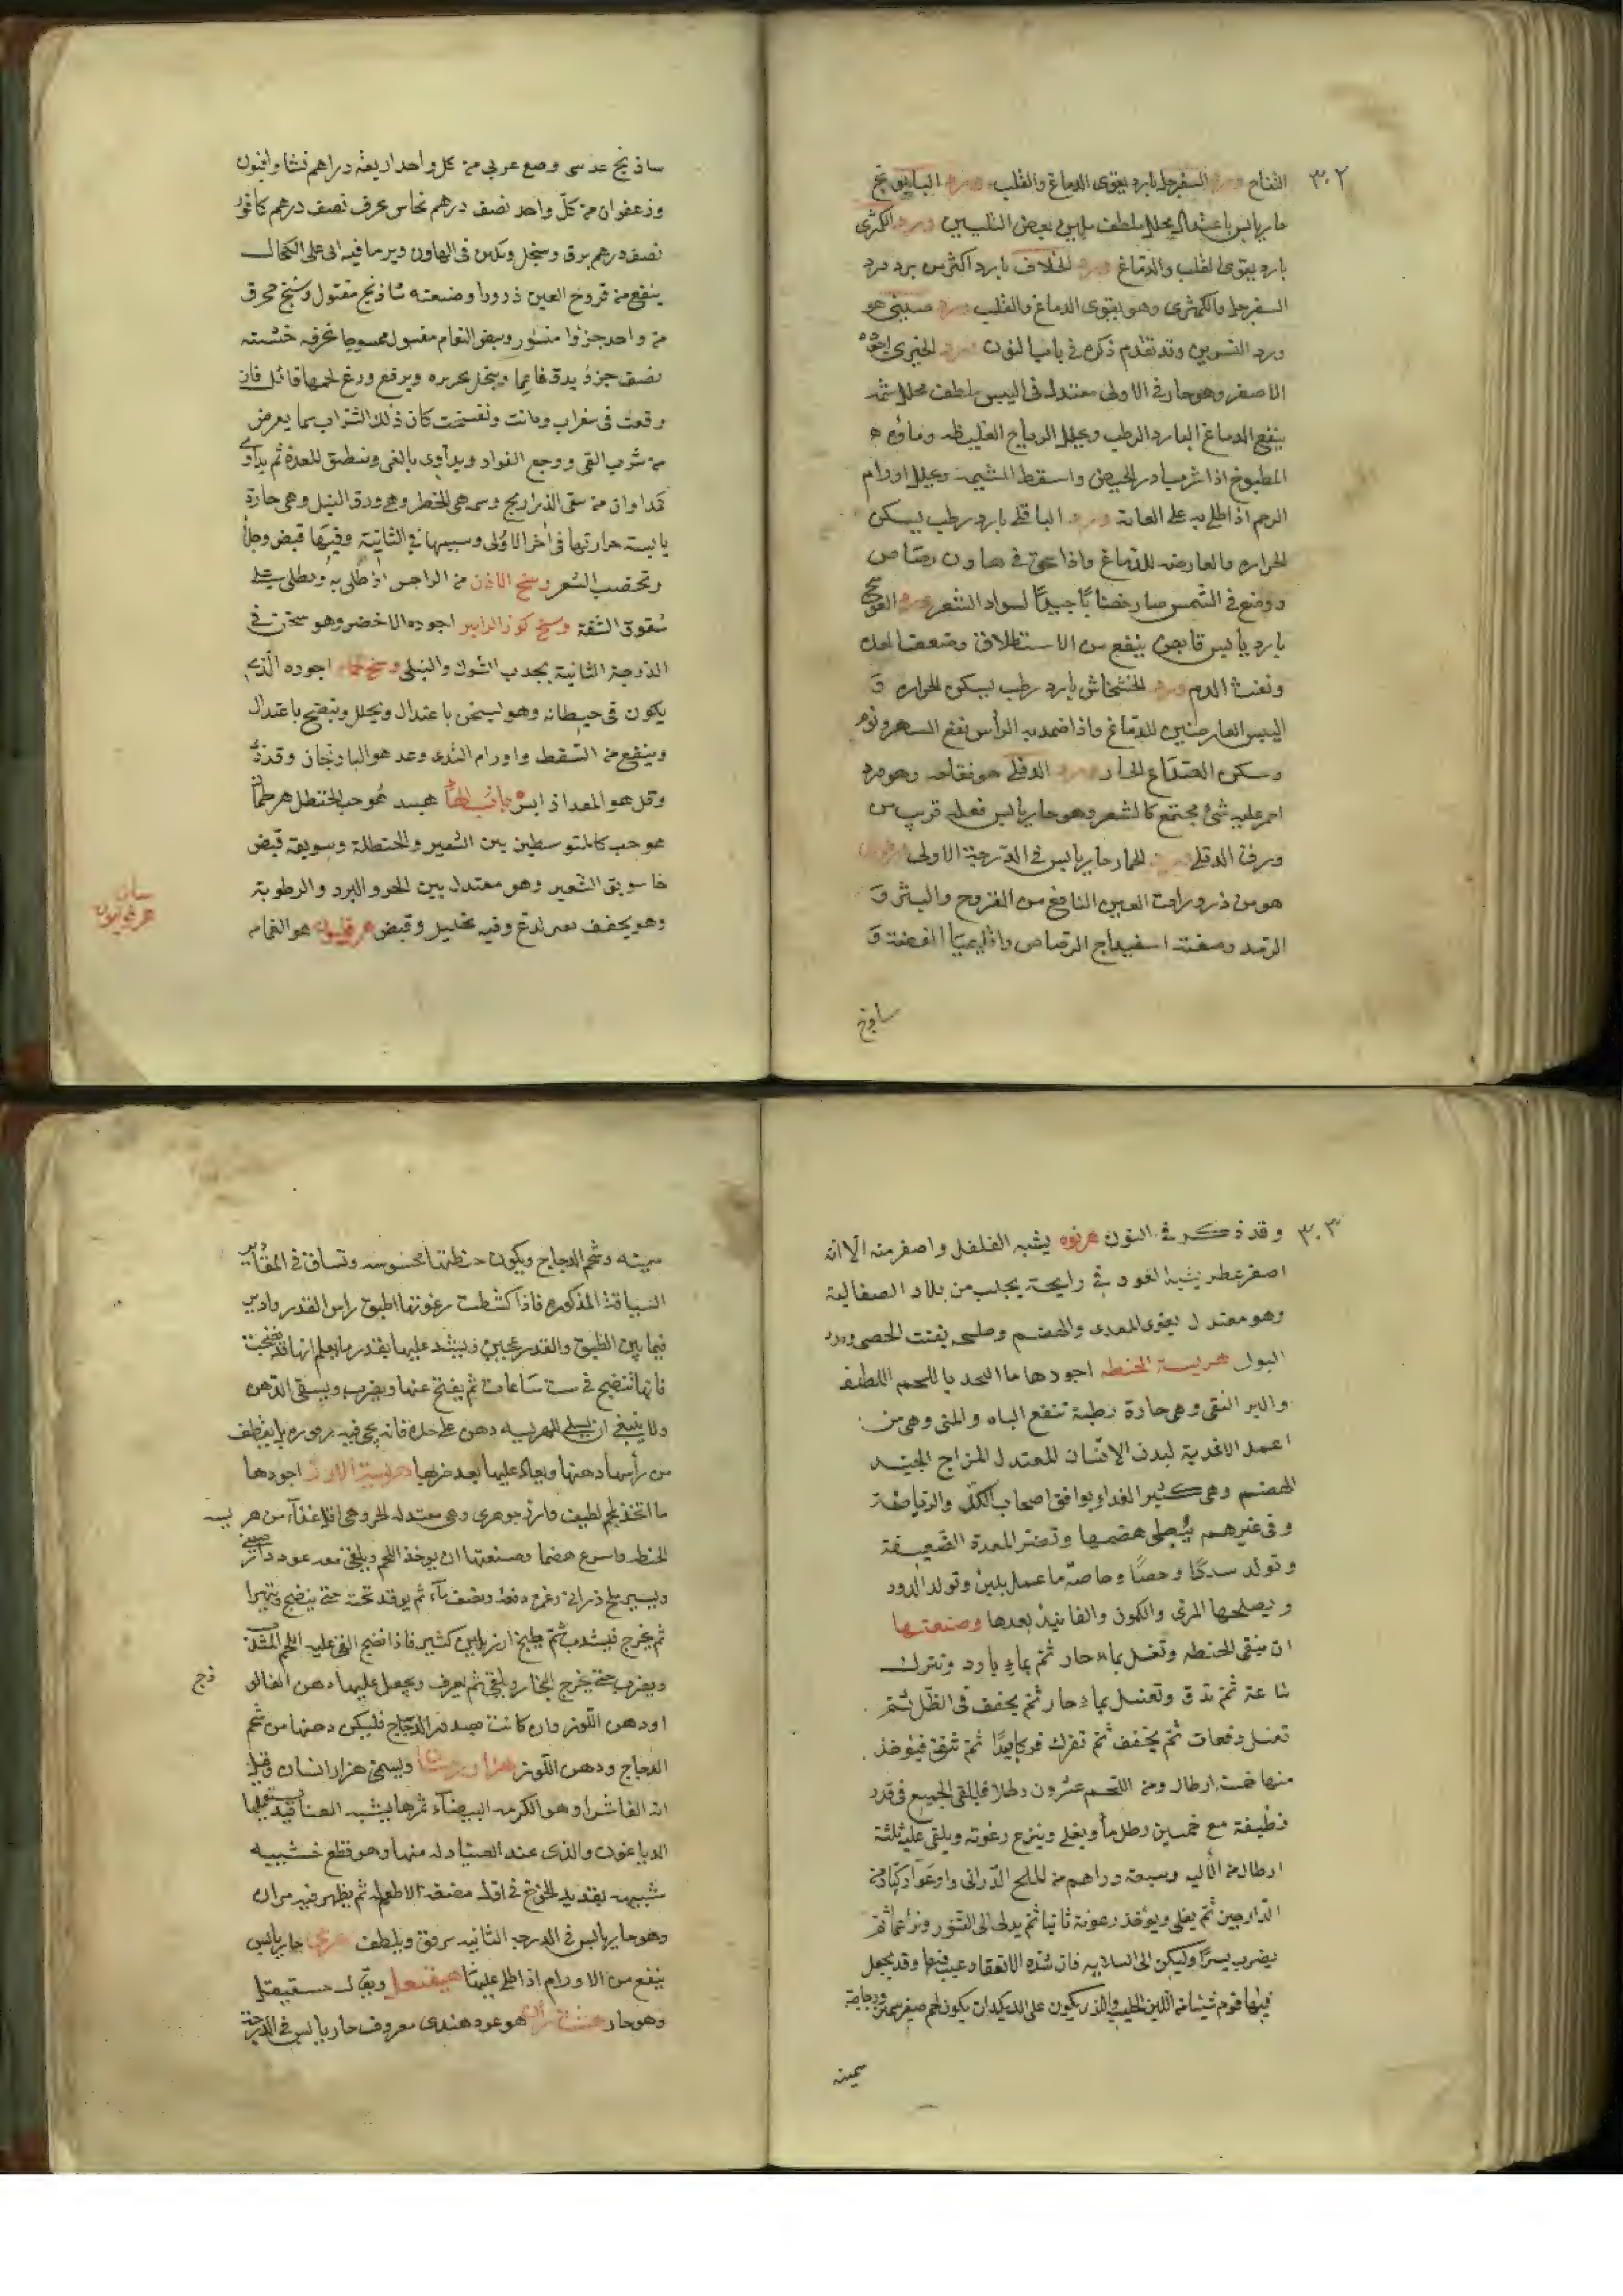 ٣٠٢
التفاح ورد السفرجل بارد يقوى الدماغ والقلب ورد البابونج
حار يابس باعتدال يحلل ملطف ملين بعض التليين ورد الكمثرى
بارد يقوى القلب والدماغ ورد الخلاف بارد اكثر من برد ورد
السفرجل والكمثرى وهو يقوى الدماغ والقلب ورد صينى هو
ورد النسرين وقد تقدم ذكره فى باب النون ورد الخيرى اجوده
الاصفر وهو حار فى الاولى معتدل فى اليبس ملطف محلل شمه
ينفع الدماغ البارد الرطب ويحلل الرياح الغليظه وماؤه
المطبوخ اذا شرب ادر الحيض واسقط المشيمه ويحلل اورام
الرحم اذا طلى به على العانة ورد الباقلى بارد رطب يسكن
الحراره العارضه للدماغ واذا سحق فى هاون رصاص
ووضع فى الشمس صار خضابا جيدا لسواد الشعر ورد العوسج
بارد يابس قابض ينفع من الاستطلاق وضعف المعدة
ونفث الدم ورد الخشخاش بارد رطب يسكن الحراره و
اليبس العارضين للدماغ واذا ضمد به الرأس نفع السهر ونوم
وسكن الصداع الحار ورد الدفلى هو نقاحه وهو ورد
احمر عليه شئ مجتمع كالشعر وهو حار يابس فعله قريب من
ورق الدفلى ورد الحمار حار يابس فى الدرجة الاولى
هو من ذرورات العين النافع من القروح والبثر و
الرمد وصفته اسفيداج الرصاص واقليميا الفضة و
ساذنج
ساذنج عدسى وصمغ عربى من كل واحد اربعة دراهم نشا وافيون
وزعفران من كل واحد نصف درهم نحاس محرق نصف درهم كافور
نصف درهم يدق وينخل ويكن فى الهاون ويرما فيه
ينفع من قروح العين ذرورا وصنعته شاذنج مغسول وشنج محرق
من واحد جزوا منثور وبيض النعام مغسول ممسوحا بخرقه خشنه
نصف جزؤ يدق ناعما وينخل بحريره ويرفع وزغ لحمها قاتل فان
وقعت فى شراب وماتت وتفسخت كان ذلك الشراب سما يعرض
من شربه القى ووجع الفواد ويداوى بالقى وتنظيف المعدة ثم يداوى
كمداواة من سقى الذراريح وسمه هى الخطر وهى ورق النيل وهى حارة
يابسة حرارتها فى اخر الاولى ويبسها فى الثانية وفيها قبض وجلا
وتخضب الشعر وسخ الاذن من الداحس اذا طلى به ويطلى على
شقوق الشفة وسخ كوز الزنابير اجوده الاخضر وهو سخن فى
الدرجة الثانية يجذب الشوك والنبل وسخ حمام اجوده الذى
يكون فى حيطانه وهو يسخن باعتدال ويحلل وينضج باعتدال
وينفع من السقط واورام الثدى وغد هو الباذنجان وقد
وقل هو المعد اذا يبس باب الهاء هبيد هو حب الحنظل هرطمان
هو حب كالمتوسطين بين الشعير والحنطة وسويقه قبض
كاسويق الشعير وهو معتدل بين الحر والبرد والرطوبة
وهو يجفف بغير لدغ وفيه تحليل وقبض هرقليون هو النمام
٣٠٣
وقد ذكر فى النون هرنوه يشبه الفلفل واصغر منه الا انه
اصفر عطر يشبه العود فى رايحته يجلب من بلاد الصقالبة
وهو معتدل يقوى المعدة والهضم وملحه يفتت الحصى ويدر
البول هريسة الحنطه اجودها ما اتخذ باللحم اللطيف
والبر النقى وهى حارة رطبة تنفع الباه والمنى وهى من
اعمل الاغذية لبدن الانسان المعتدل المزاج الجيد
الهضم وهى كثير الغذاء يوافق اصحاب الكد والرياضة
وفى غيرهم يبطى هضمها وتضر المعدة الضعيفة
وتولد سددا وحصا وخاصة ما عمل بلبن وتولد الدود
ويصلحها المرى والكمون والفانيذ بعدها وصنعتها
ان ينقى الحنطه وتغسل بماء حار ثم بماء بارد وتترك
ساعة ثم تدق وتغسل بماء حار ثم يجفف فى الظل ثم
تغسل دفعات ثم يجفف ثم تفرك فركا جيدا ثم تنقى فيؤخذ
منها خمسة ارطال ومن اللحم عشرون رطلا فيلقى الجميع فى قدر
نظيفة مع خمسين رطل ماء ويغلى وينزع رغوته ويلقى عليه ثلثة
ارطال من الأليه وسبعة دراهم من الملح الدرانى
الدارجين ثم يغلى ويؤخذ رغوته ثانيا ثم يدلى الى التنور
يضرب يسيرا وليكن الى السلابه فان شدة الانعقاد عيب فيها وقد يجعل
سمينه
سمينه وشحم الدجاج ويكون حنطتها محسوسه وتساق فى المقادير
السياقة المذكوره فاذا كشطت رغوتها اطبق راس القدر وادير
فيما بين الطبق والقدر عجين ويشد عليها بقدر ما يعلم انها قد نضجت
فانها تنضج فى ست ساعات ثم يفتح عنها ويضرب ويسقى الدهن
ولا ينبغى ان يسلى للهريسه دهن على حده فانه يجى فيه زهوره بل يقطف
من رأسها دهنها ويعاد عليها بعد ضربها هريسة الارز اجودها
ما اتخذ بلحم لطيف وارز جوهرى وهى معتدله الحر وهى اقل غذاء من هريسه
الحنطه واسرع هضما وصنعتها ان يوخذ اللحم ويلقى معه عود دار صينى
ويسير ملح ذرانى وغمره دفعه ونصف ماء ثم يوقد تحته حتى ينضج ويتهرا
ثم يخرج فيشدب ثم يطبخ ارز بلبن كثير فاذا نضج القى عليه اللحم المشدب
ويضرب حتى يخرج البخار ويلقى ثم يغرف ويجعل عليها دهن الفالو
ذج
او دهن اللوز وان كانت بصدر الدجاج فليكن دهنها من شحم
الدجاج ودهن اللوز هزارجشان ويسمى هزارانسان وقيل
انه الفاشرا وهو الكرمه البيضاء ثمرها يشبه العناقيد يستعملها
الدباغون والذى عند الصيادله منها وهو قطع خشبيه
شبيهه بقديد الخوخ فى اوله مضغه لاطعم له ثم يظهر فيه مراره
وهو حار يابس فى الدرجه الثانيه يرقق ويلطف حار يابس
ينفع من الاورام اذا طلى عليها هيفنغل ويقال
وهو حار هو عود هندى معروف حار يابس فى الدرجة